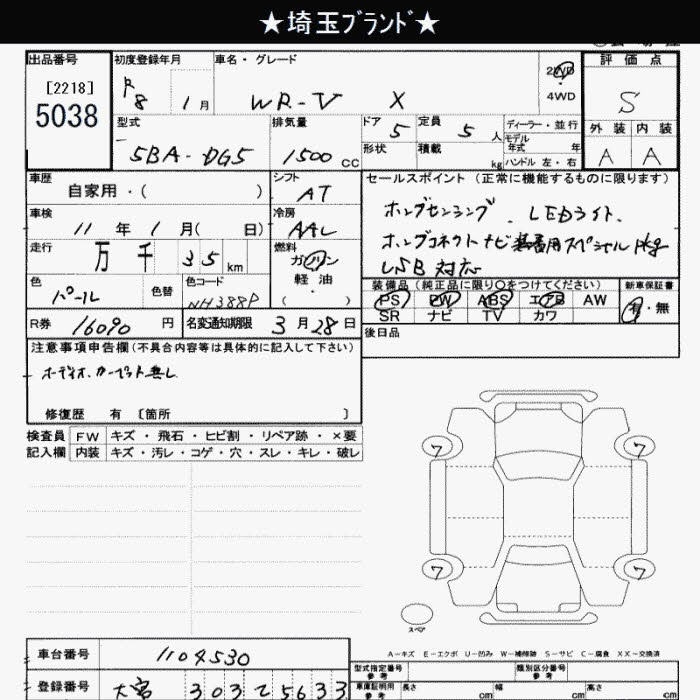 ★埼玉ブランド★
出品番号 初度登録年月 車名・グレード 評価点
[2218] R 8 1月 WR-V X 2WD S
5038 4WD
型式 排気量 ドア 5 定員 5人 ディーラー・並行 外装 内装
5BA-DG5 1500cc 形状 積載 kg モデル年式 年 A A
ハンドル 左・右
車歴 シフト セールスポイント（正常に機能するものに限ります）
自家用・（ ） AT ホンダセンシング．LEDライト．
車検 冷房 ホンダコネクトナビ装着用スペシャルPkg
11年1月（ 日） AAC USB対応
走行 燃料
万 千 35km ガソリン 装備品（純正品に限り○をつけてください） 新車保証書
色 色替 色コード 軽油 PS PW ABS エアB AW 有・無
パール NH388P （ ） SR ナビ TV カワ
R券 16090円 名変通知期限 3月28日 後日品
注意事項申告欄（不具合内容等は具体的に記入して下さい）
オーディオ．カーペット無し
修復歴 有 〔箇所 〕
検査員 FW キズ・飛石・ヒビ割・リペア跡・×要
記入欄 内装 キズ・汚レ・コゲ・穴・スレ・キレ・破レ
7 7
7 7
スペア
A－キズ E－エクボ U－凹み W－補修跡 S－サビ C－腐食 XX－交換済
車台番号 1104530 型式指定番号 参考 類別区分番号 参考
登録番号 大宮 303 て 5633 車庫証明用 参考 長さ cm 幅 cm 高さ cm